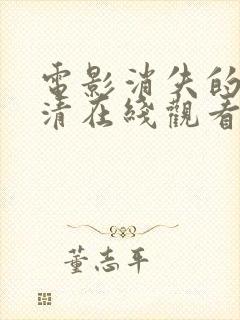 電影消失的
清在綫觀看
董志平